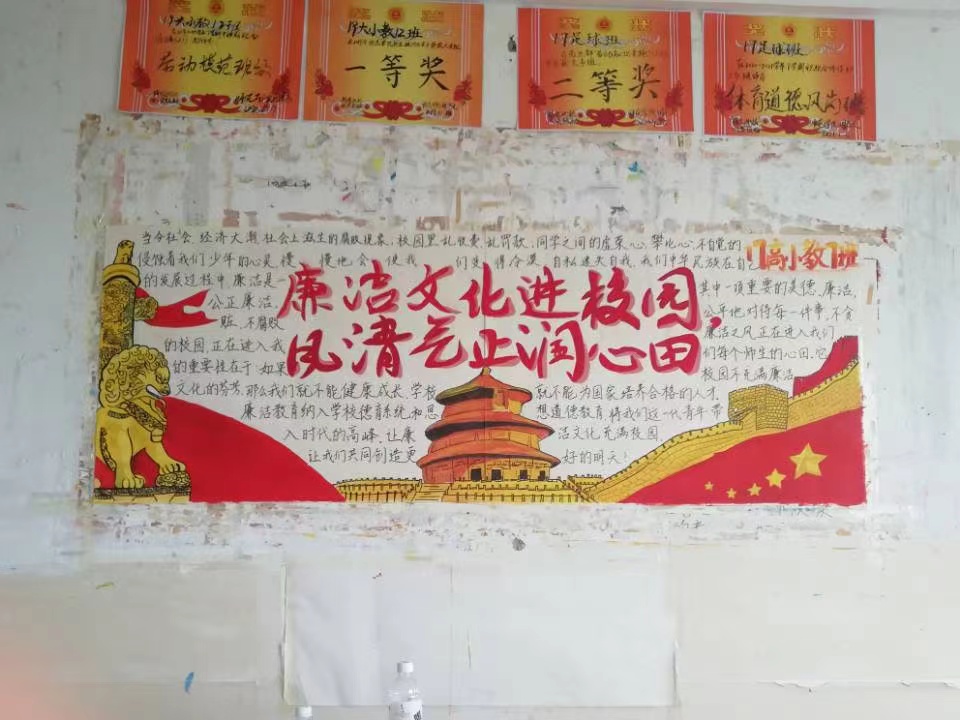 奖 状
19大小教12班
劳动模范班级
奖 状
19大小教12班
一等奖
奖 状
19足球班
二等奖
奖 状
19足球班
体育道德风尚
当今社会、经济大潮、社会上滋生的腐败现象,校园里乱收费、乱罚款,同学之间的虚荣心、攀比心,不自觉的
侵蚀着我们少年的心灵,慢慢地会使我们变得冷漠、自私迷失自我,我们中华民族在自己
17高小教7班
的发展过程中,廉洁是其中一项重要的美德、廉洁,
公正廉洁,公平地对待每一件事,不贪
赃,不腐败 廉洁之风正在进入我们
的校园,正在进入我们每个师生的心田,它
的重要性在于:如果校园不充满廉洁
廉洁文化进校园,
风清气正润心田
文化的芬芳,那么我们就不能健康成长,学校就不能为国家培养合格的人才,
廉洁教育纳入学校德育系统和思想道德教育,将我们这一代青年带
入时代的高峰,让廉洁文化充满校园
让我们共同创造更好的明天!